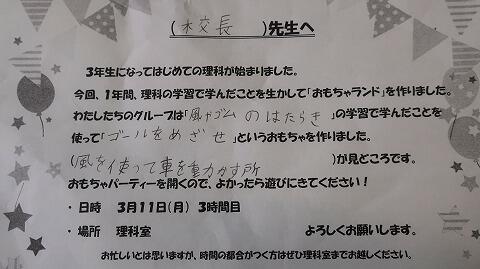 (校長)先生へ
3年生になってはじめての理科が始まりました。
今回、1年間、理科の学習で学んだことを生かして「おもちゃランド」を作りました。
わたしたちのグループは「風やゴムのはたらき」の学習で学んだことを
使って「ゴールをめざせ」というおもちゃを作りました。
(風を使って車を動かす所)が見どころです。
おもちゃパーティーを開くので、よかったら遊びにきてください!
・日時 3月11日(月) 3時間目
・場所 理科室 よろしくお願いします。
お忙しいとは思いますが、時間の都合がつく方はぜひ理科室までお越しください。